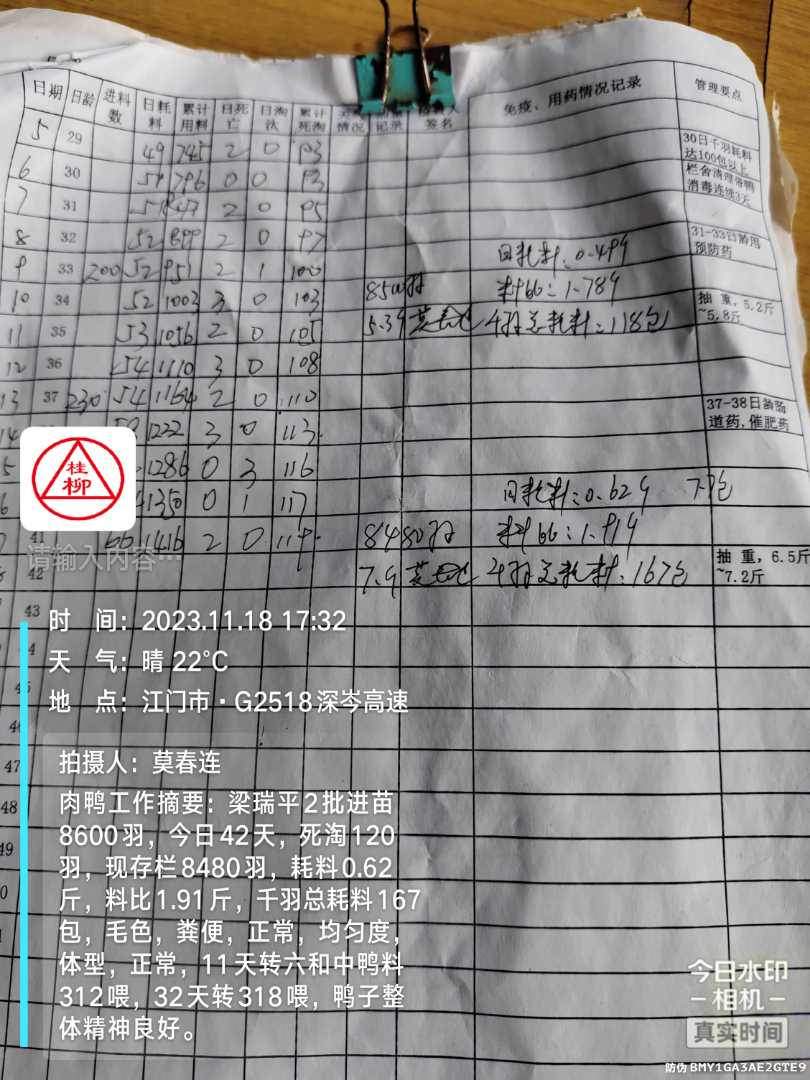 日期 日龄 进料数 日耗料 累计用料 日死亡 日淘汰 累计死淘 情况 记录 签名 免疫、用药情况记录 管理要点
5 29 49 745 2 0 93
30日千羽耗料达100包以上
6 30 51 796 0 0 93
栏舍清理带鸭消毒连续3天
7 31 51 847 2 0 95
8 32 52 899 2 0 97 日耗料:0.49斤
31-33日龄用预防药
9 33 200 52 951 2 1 100 8500羽 料比:1.78斤
10 34 52 1003 3 0 103 5.3斤 千羽总耗料:118包
抽重,5.2斤~5.8斤
11 35 53 1056 2 0 105
12 36 54 1110 3 0 108
13 37 230 54 1164 2 0 110
37-38日龄肠道药,催肥药
14 1222 3 0 113
5 1286 0 3 116
6 1350 0 1 117 日耗料:0.62斤
41 66 1416 2 0 119 8480羽 料比:1.91斤
42 7.9 千羽总耗料:167包
抽重,6.5斤~7.2斤
桂柳
请输入内容…
43
时 间:2023.11.18 17:32
天 气:晴 22℃
地 点:江门市·G2518深岑高速
47
48
拍摄人:莫春连
肉鸭工作摘要:梁瑞平2批进苗
8600羽,今日42天,死淘120
羽,现存栏8480羽,耗料0.62
斤,料比1.91斤,千羽总耗料167
包,毛色,粪便,正常,均匀度,
体型,正常,11天转六和中鸭料
312喂,32天转318喂,鸭子整
体精神良好。
今日水印
相机
真实时间
防伪 BMY1GA3AE2GTE9